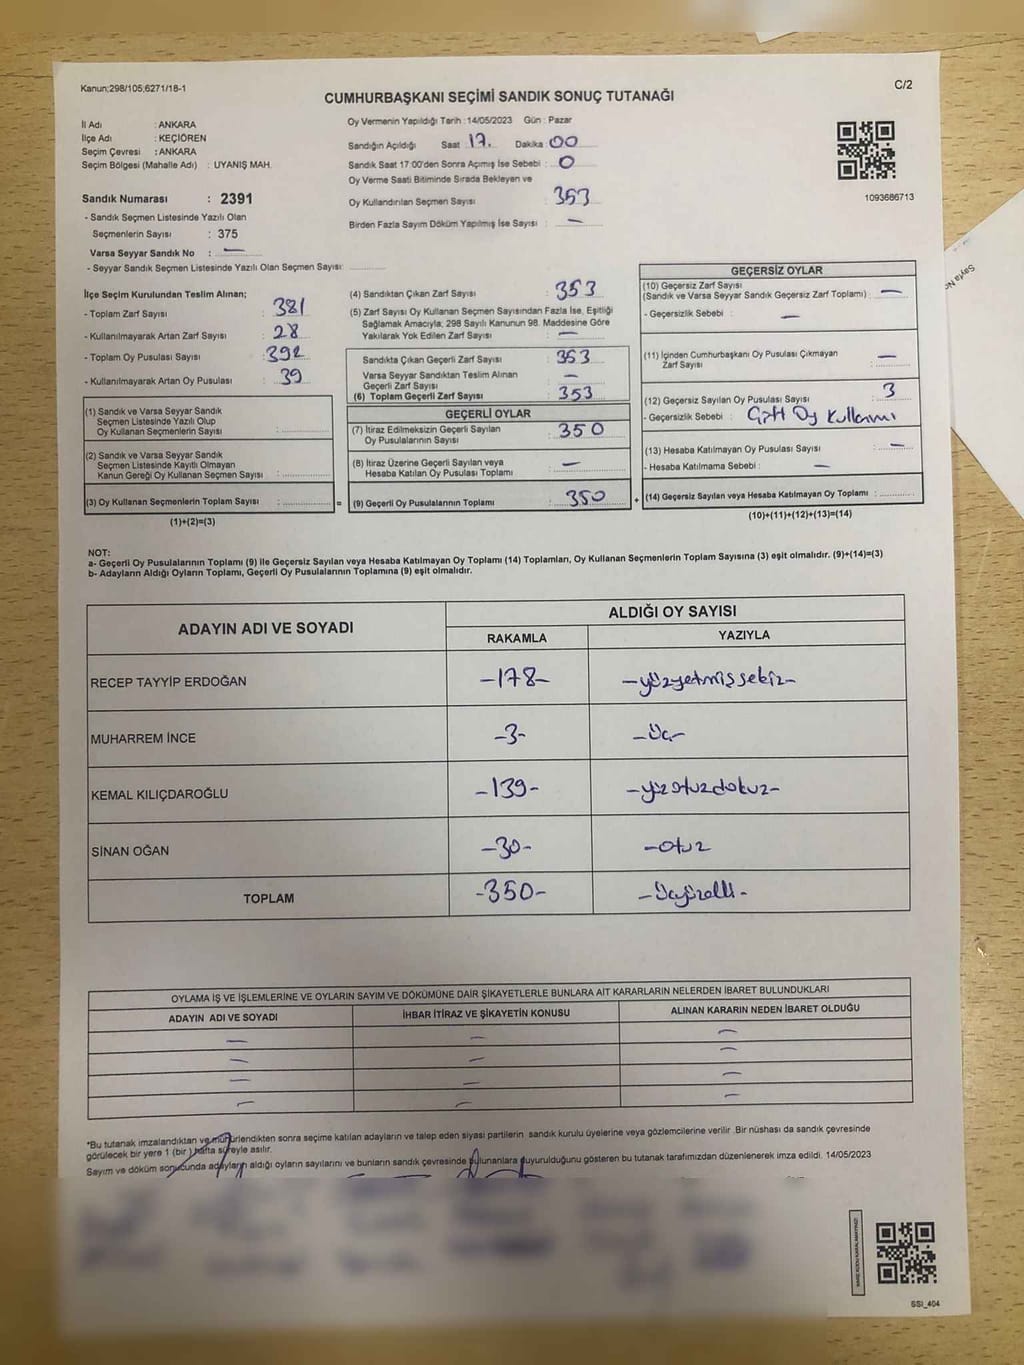 Kanun;298/105,6271/18-1
C/2
CUMHURBAŞKANI SEÇİMİ SANDIK SONUÇ TUTANAĞI
İl Adı : ANKARA
İlçe Adı : KEÇİÖREN
Seçim Çevresi : ANKARA
Seçim Bölgesi (Mahalle Adı) : UYANIŞ MAH.
Sandık Numarası : 2391
- Sandık Seçmen Listesinde Yazılı Olan
Seçmenlerin Sayısı : 375
Varsa Seyyar Sandık No : —
- Seyyar Sandık Seçmen Listesinde Yazılı Olan Seçmen Sayısı:
Oy Vermenin Yapıldığı Tarih :14/05/2023 Gün : Pazar
Sandığın Açıldığı Saat 17. Dakika 00
Sandık Saat 17:00'den Sonra Açımış İse Sebebi : 0
Oy Verme Saati Bitiminde Sırada Bekleyen ve
Oy Kullandırılan Seçmen Sayısı : 353
Birden Fazla Sayım Döküm Yapılmış İse Sayısı : —
1093686713
İlçe Seçim Kurulundan Teslim Alınan;
- Toplam Zarf Sayısı : 381
- Kullanılmayarak Artan Zarf Sayısı : 28
- Toplam Oy Pusulası Sayısı : 392
- Kullanılmayarak Artan Oy Pusulası : 39
(1) Sandık ve Varsa Seyyar Sandık
Seçmen Listesinde Yazılı Olup
Oy Kullanan Seçmenlerin Sayısı :
(2) Sandık ve Varsa Seyyar Sandık
Seçmen Listesinde Kayıtlı Olmayan
Kanun Gereği Oy Kullanan Seçmen Sayısı :
(3) Oy Kullanan Seçmenlerin Toplam Sayısı : =
(1)+(2)=(3)
(4) Sandıktan Çıkan Zarf Sayısı : 353
(5) Zarf Sayısı Oy Kullanan Seçmen Sayısından Fazla İse, Eşitliği
Sağlamak Amacıyla; 298 Sayılı Kanunun 98. Maddesine Göre
Yakılarak Yok Edilen Zarf Sayısı : —
Sandıkta Çıkan Geçerli Zarf Sayısı : 353
Varsa Seyyar Sandıktan Teslim Alınan
Geçerli Zarf Sayısı : —
(6) Toplam Geçerli Zarf Sayısı : 353
GEÇERLİ OYLAR
(7) İtiraz Edilmeksizin Geçerli Sayılan
Oy Pusulalarının Sayısı : 350
(8) İtiraz Üzerine Geçerli Sayılan veya
Hesaba Katılan Oy Pusulası Toplamı : —
(9) Geçerli Oy Pusulalarının Toplamı : 350 +
GEÇERSİZ OYLAR
(10) Geçersiz Zarf Sayısı
(Sandık ve Varsa Seyyar Sandık Geçersiz Zarf Toplamı) : —
- Geçersizlik Sebebi : —
(11) İçinden Cumhurbaşkanı Oy Pusulası Çıkmayan
Zarf Sayısı : —
(12) Geçersiz Sayılan Oy Pusulası Sayısı : 3
- Geçersizlik Sebebi : Çift Oy Kullanımı
(13) Hesaba Katılmayan Oy Pusulası Sayısı : —
- Hesaba Katılmama Sebebi : —
(14) Geçersiz Sayılan veya Hesaba Katılmayan Oy Toplamı :
(10)+(11)+(12)+(13)=(14)
NOT:
a- Geçerli Oy Pusulalarının Toplamı (9) ile Geçersiz Sayılan veya Hesaba Katılmayan Oy Toplamı (14) Toplamları, Oy Kullanan Seçmenlerin Toplam Sayısına (3) eşit olmalıdır. (9)+(14)=(3)
b- Adayların Aldığı Oyların Toplamı, Geçerli Oy Pusulalarının Toplamına (9) eşit olmalıdır.
ADAYIN ADI VE SOYADI ALDIĞI OY SAYISI
RAKAMLA YAZIYLA
RECEP TAYYİP ERDOĞAN -178- -yüzyetmişsekiz-
MUHARREM İNCE -3- -Üç-
KEMAL KILIÇDAROĞLU -139- -yüzotuzdokuz-
SİNAN OĞAN -30- -otuz
TOPLAM -350- -Üçyüzelli-
OYLAMA İŞ VE İŞLEMLERİNE VE OYLARIN SAYIM VE DÖKÜMÜNE DAİR ŞİKAYETLERLE BUNLARA AİT KARARLARIN NELERDEN İBARET BULUNDUKLARI
ADAYIN ADI VE SOYADI İHBAR İTİRAZ VE ŞİKAYETİN KONUSU ALINAN KARARIN NEDEN İBARET OLDUĞU
— — —
— — —
— — —
— — —
*Bu tutanak imzalandıktan ve mühürlendikten sonra seçime katılan adayların ve talep eden siyasi partilerin sandık kurulu üyelerine veya gözlemcilerine verilir .Bir nüshası da sandık çevresinde
görülecek bir yere 1 (bir ) hafta süreyle asılır.
Sayım ve döküm sonucunda adayların aldığı oyların sayılarını ve bunların sandık çevresinde bulunanlara duyurulduğunu gösteren bu tutanak tarafımızdan düzenlenerek imza edildi. 14/05/2023
SSI_404